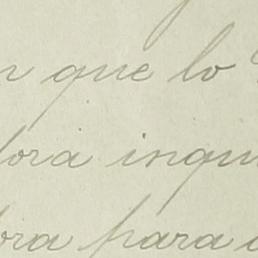 que lo
ora inqu
ora para